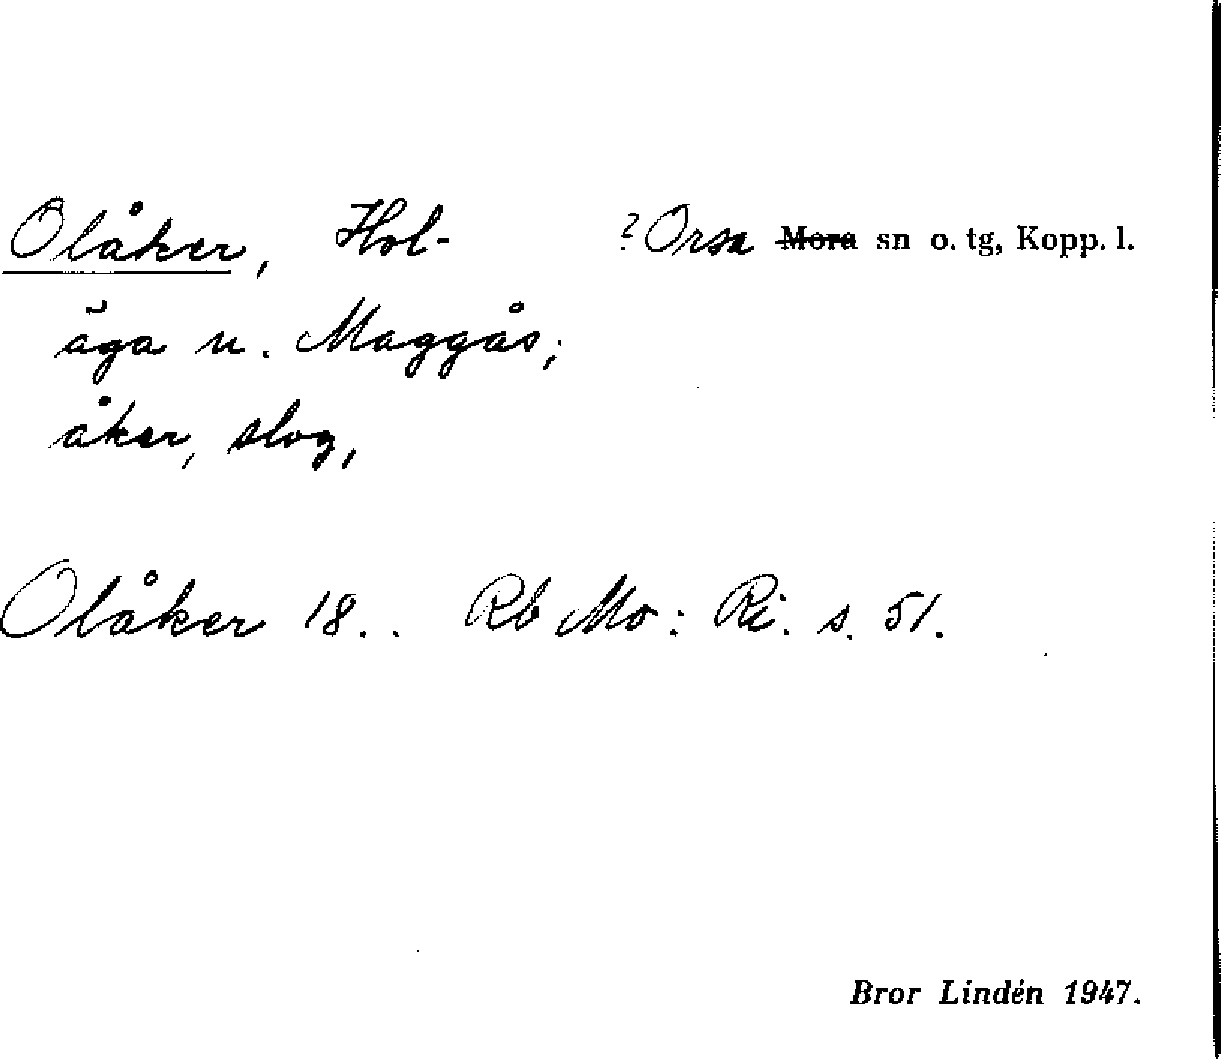 Olåker, Hol- ? Orsa Mora sn o. tg, Kopp. l.
äga u. Maggås;
åker, slog,
Olåker 18.. Rb Mo: Ri. s. 51.
Bror Lindén 1947.